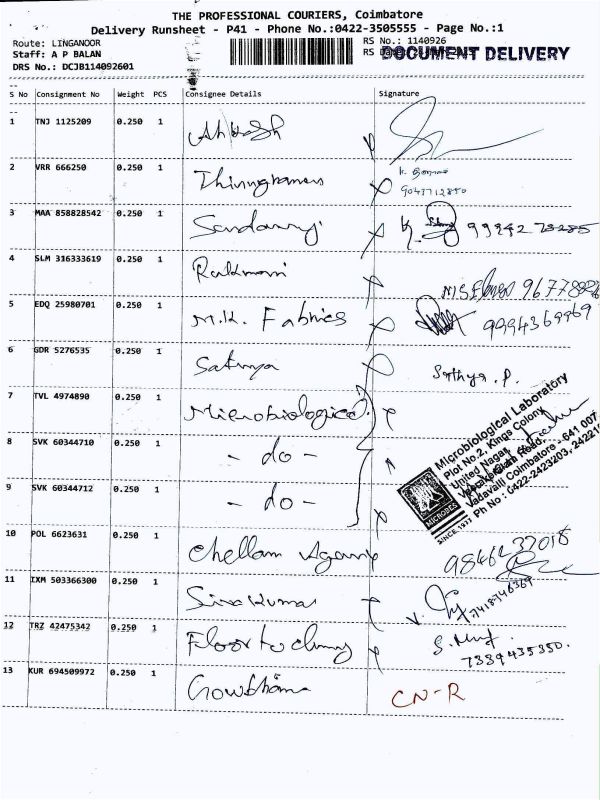 THE PROFESSIONAL COURIERS, Coimbatore
Delivery Runsheet - P41 - Phone No.:0422-3505555 - Page No.:1
Route: LINGANOOR
RS No.: 1140926
Staff: A P BALAN
RS DOCUMENT DELIVERY
DRS No.: DCJB114092601
S No Consignment No Weight PCS Consignee Details Signature
1 TNJ 1125209 0.250 1
2 VRR 666250 0.250 1
9043712850
3 MAA 858828542 0.250 1
4 SLM 316333619 0.250 1
5 EDQ 25980701 0.250 1 M.K. Fabrics 9994369969
6 GDR 5276535 0.250 1 Sathya Sathya.P.
7 TVL 4974890 0.250 1 Microbiological
8 SVK 60344710 0.250 1 - do -
9 SVK 60344712 0.250 1 - do -
Microbiological Laboratory
Plot No.2, Kings Colony
United Nagar,
Vadavalli Coimbatore - 641 007
Ph No : 0422-2423203,
MICROBES
SINCE 1977
10 POL 6623631 0.250 1 Chellam
11 IXM 503366300 0.250 1 Sivakumar
12 TRZ 42475342 0.250 1
7339435350.
13 KUR 694509972 0.250 1 CN-R